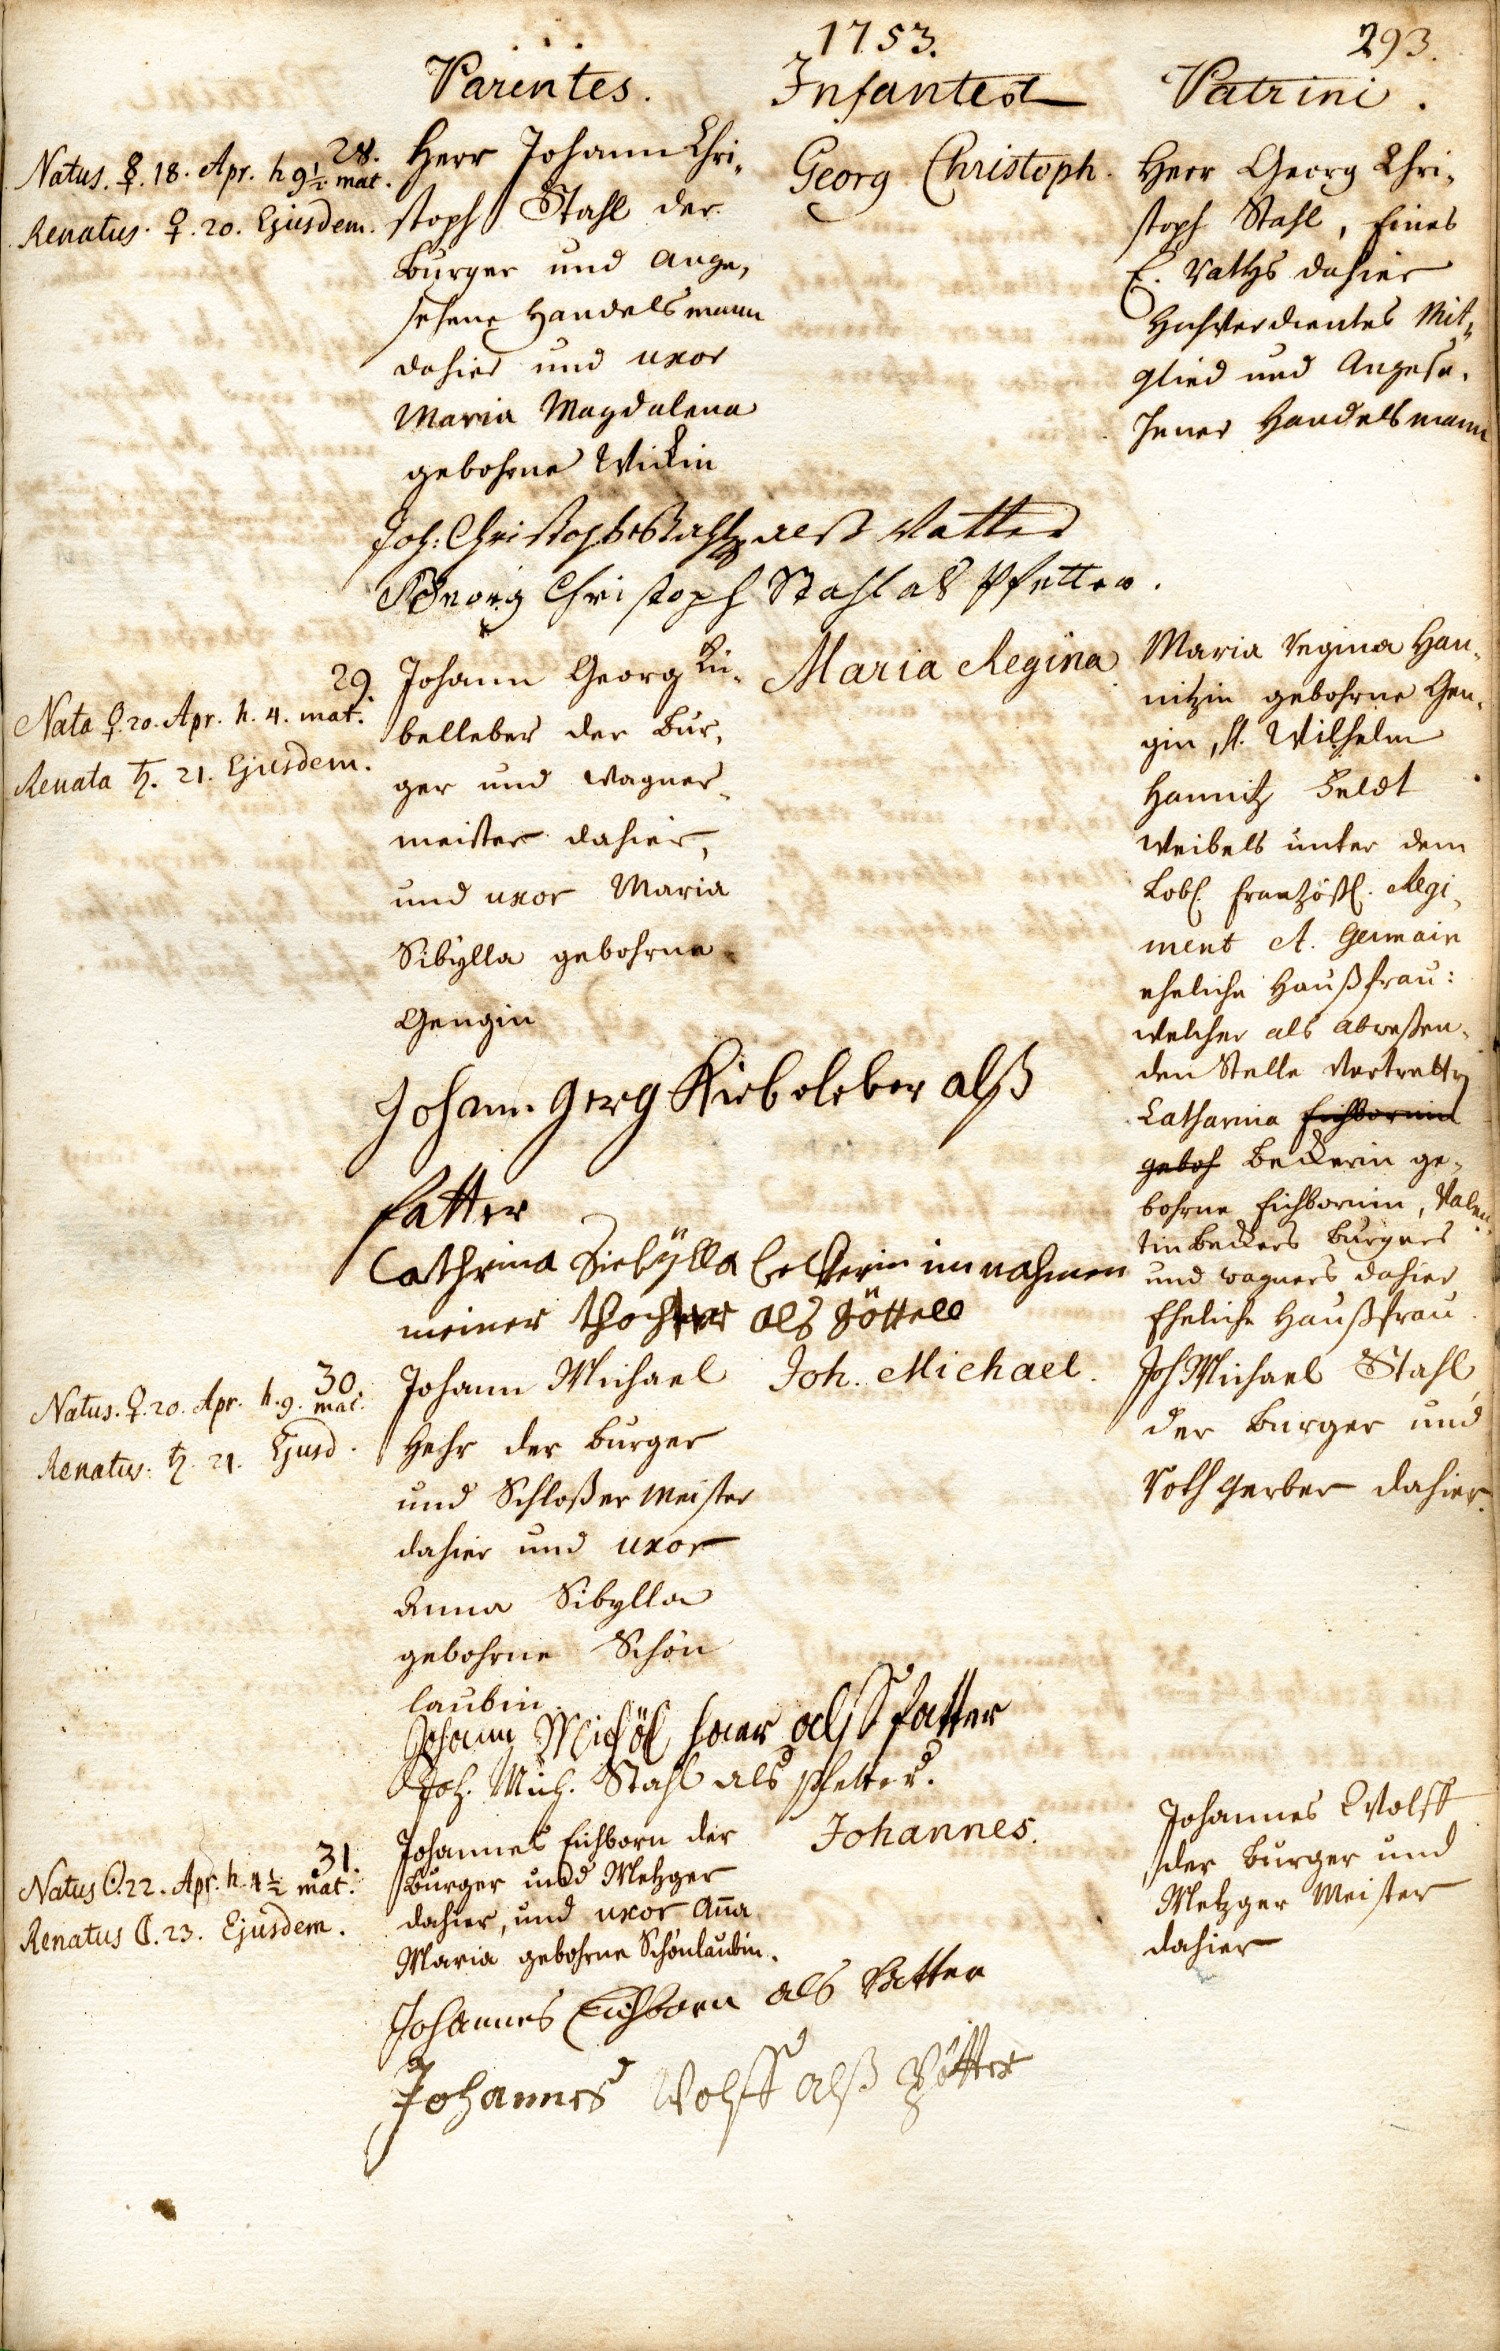 1753.
293.
Parentes.
Infantes
Patrini.
28.
Natus. ☿. 18. Apr. h 9½ mat.
Renatus. ♀. 20. Ejusdem.
Herr Johann Chri-
stoph Stahl der
Burger und ange-
sehene Handelsmann
dahier und uxor
Maria Magdalena
gebohrne Wickin
Georg Christoph.
Herr Georg Chri-
stoph Stahl, Eines
E. Raths dahier
Hochverdientes Mit-
glied und Angese-
hener Handelsmann
Joh: Christoph Stahl alß Vatter
Georg Christoph Stahl als Pfetter.
29.
Nata ♀. 20. Apr. h. 4. mat.
Renata ♄. 21. Ejusdem.
Johann Georg Kü-
belleber der Bur-
ger und Wagner-
meister dahier,
und uxor Maria
Sibÿlla gebohrne
Gengin
Maria Regina
Maria Regina Han-
nitzin gebohrne Gen-
gin, H. Wilhelm
Hannitz Feldt
Weibels unter dem
Lobl. Französl. Regi-
ment St. Germain
eheliche Haußfrau:
welcher als abweßen-
den Stelle Vertretten
Catharina Eichbornin
geboh Beckerin ge-
bohrne Eichbornin, Valen-
tin Beckers Burgers
und Wagners dahier
Eheliche Haußfrau
Johann Gerg Kieboleber alß
fatter
Cathrina Siebÿlla beckerin im nahmen
meiner thochter als göttell
30.
Natus. ♀. 20. Apr. h. 9. mat.
Renatus. ♄. 21. Ejusd.
Johann Michael
Hehr der Burger
und Schloßer Meister
dahier und uxor
Anna Sibylla
gebohrne Schön
laubin
Joh. Michael.
Joh Michael Stahl
der Burger und
Roth gerber dahier.
Johann Michöl haer alß fatter
Joh. Mich. Stahl als Pfetter.
31.
Natus ☉. 22. Apr. h. 4½ mat.
Renatus ☾. 23. Ejusdem.
Johannes Eichborn der
Burger und Metzger
dahier, und uxor Aña
Maria gebohrne Schönlaubin.
Johannes.
Johannes Wolff
der Burger und
Metzger Meister
dahier
Johannes Eichborn als Vatter
Johannes Wolff alß Pötter